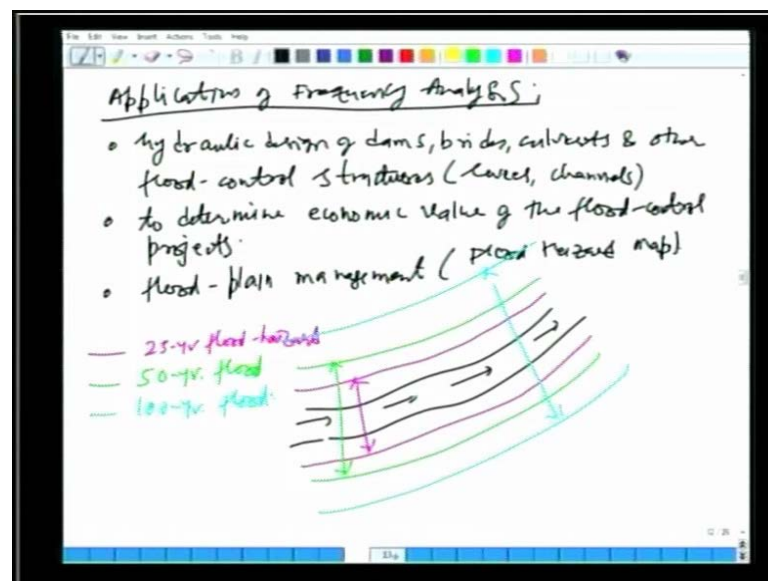 File Edit View Insert Actions Tools Help
Application of Frequency Analysis;
• hydraulic design of dams, brides, culverts & other
flood-control structures (levees, channels)
• to determine economic value of the flood-control
projects.
• flood-plain management (flood Hazard map)
25-yr flood-hazard
50-yr. flood
100-yr. flood.